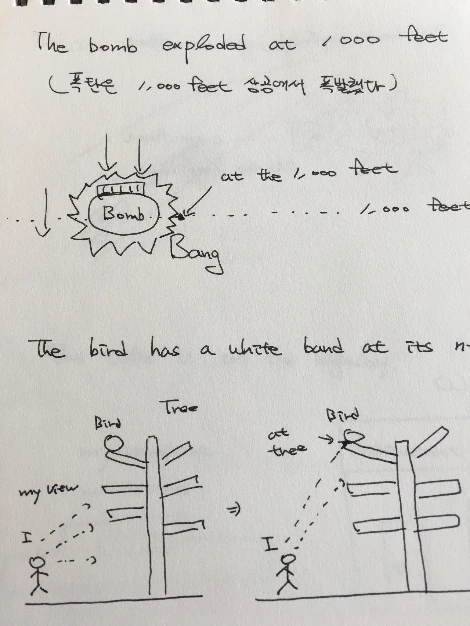 The bomb exploded at 1,000 feet
(폭탄은 1,000 feet 상공에서 폭발했다)
at the 1,000 feet
Bomb
1,000 feet
Bang
The bird has a white band at its
Bird
Tree
my view
I
Bird
at
tree
I